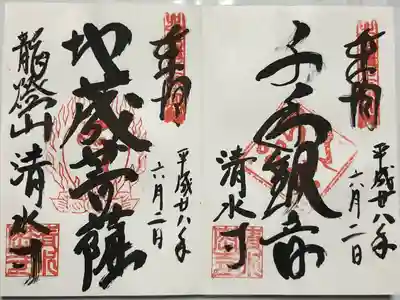 奉拝
平成廿八年
六月二日
千手観音
清水寺
奉拝
平成廿八年
六月二日
地蔵菩薩
龍燈山清水寺